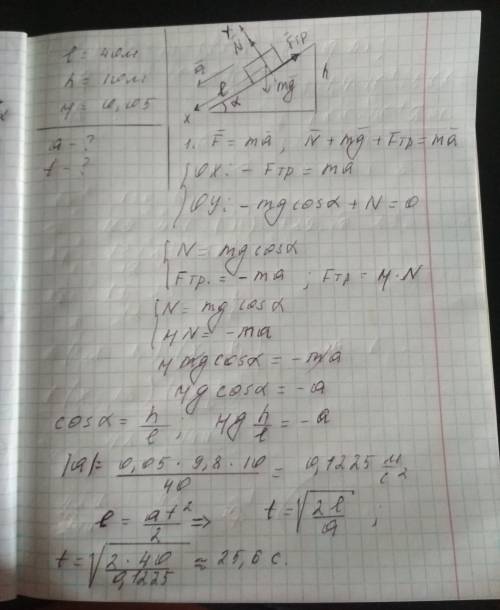 l = 40м
h = 10м
μ = 0,05
a - ?
t - ?
y
N
Fтр
a
l
h
x
α
mg
1. F̄ = mā ; N̄ + mḡ + F̄тр = mā
OX: - Fтр = ma
OY: - mg cosα + N = 0
N = mg cosα
Fтр. = - ma ; Fтр = μ · N
N = mg cosα
μN = - ma
μ mg cosα = - ma
μg cosα = - a
cosα = h/l ; μg h/l = - a
|a| = 0,05 · 9,8 · 10 / 40 = 0,1225 м/с²
l = at²/2 ⇒ t = √(2l/a) ;
t = √(2 · 40 / 0,1225) ≈ 25,6 с.